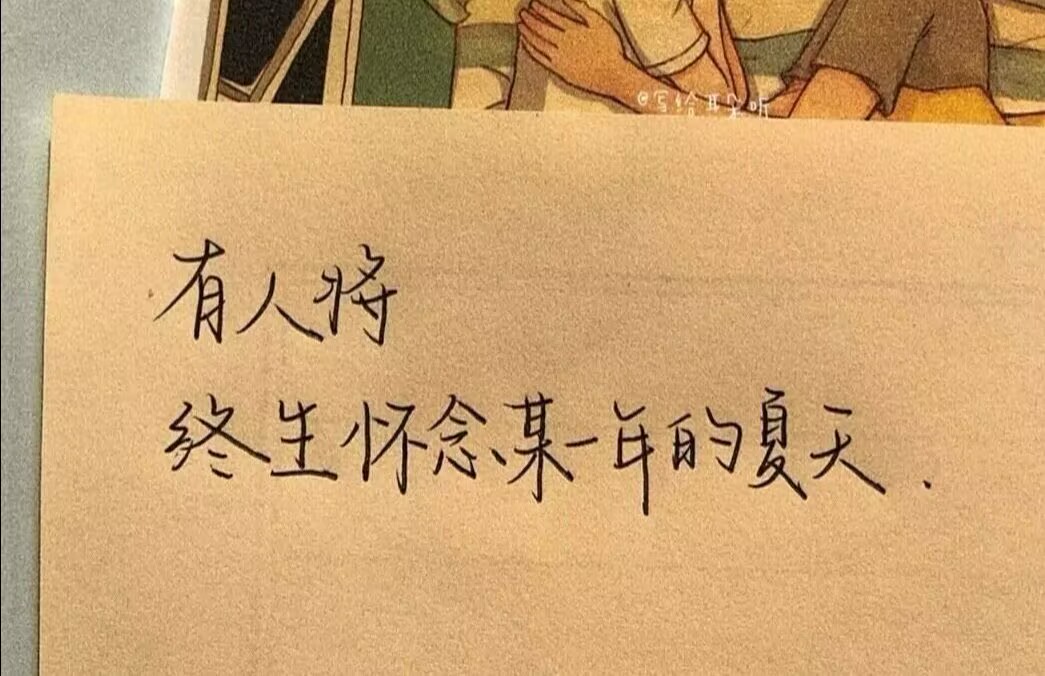 @写给耳朵听
有人将
终生怀念某一年的夏天.